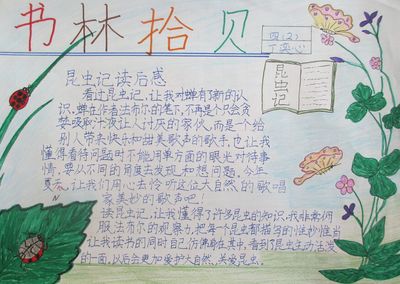 书林拾贝
四(2)
丁奕心
昆虫记
昆虫记读后感
看过昆虫记,让我对蝉有了新的认
识,蝉在作者法布尔的笔下,不再是个只会贪
婪吸取汁液让人讨厌的家伙,而是一个给
别人带来快乐和甜美歌声的歌手,也让我
懂得看待问题时不能用单方面的眼光对待事
情,要从不同的角度去发现和想问题,今年
夏天,让我们用心去伶听这位大自然的歌唱
家美妙的歌声吧!
读昆虫记,让我懂得了许多昆虫的知识,我非常佩
服法布尔的观察力,把每一个昆虫都描写的惟妙惟肖
让我读书的同时自己仿佛身在其中,看到了昆虫生动活泼
的一面,以后会更加爱护大自然,关爱昆虫。